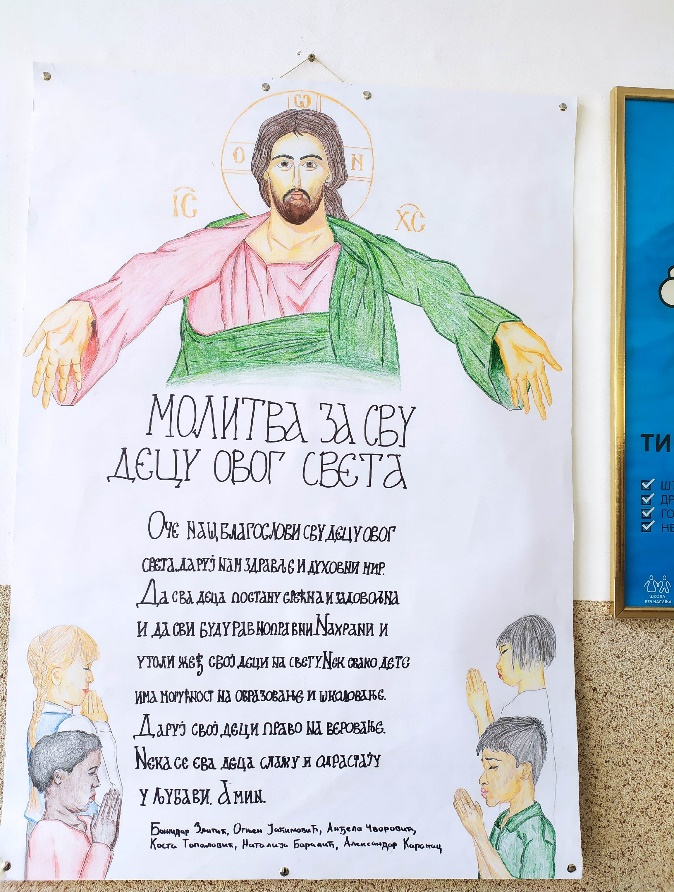 Ѡ
О Н
ІС ХС
МОЛИТВА ЗА СВУ
ДЕЦУ ОВОГ СВЕТА
ОЧЕ НАШ, БЛАГОСЛОВИ СВУ ДЕЦУ ОВОГ
СВЕТА. ДАРУЈ НАМ ЗДРАВЉЕ И ДУХОВНИ МИР.
ДА СВА ДЕЦА ПОСТАНУ СРЕЋНА И ЗАДОВОЉНА
И ДА СВИ БУДУ РАВНОПРАВНИ. НАХРАНИ И
УТОЛИ ЖЕЂ СВОЈ ДЕЦИ НА СВЕТУ. НЕК СВАКО ДЕТЕ
ИМА МОГУЋНОСТ НА ОБРАЗОВАЊЕ И ШКОЛОВАЊЕ.
ДАРУЈ СВОЈ ДЕЦИ ПРАВО НА ВЕРОВАЊЕ.
НЕКА СЕ СВА ДЕЦА СЛАЖУ И ОДРАСТАЈУ
У ЉУБАВИ. АМИН.
Божидар Огњен Јаћимовић, Анђела Чворовић,
Коста Топаловић, Наталија Александар
ТИ